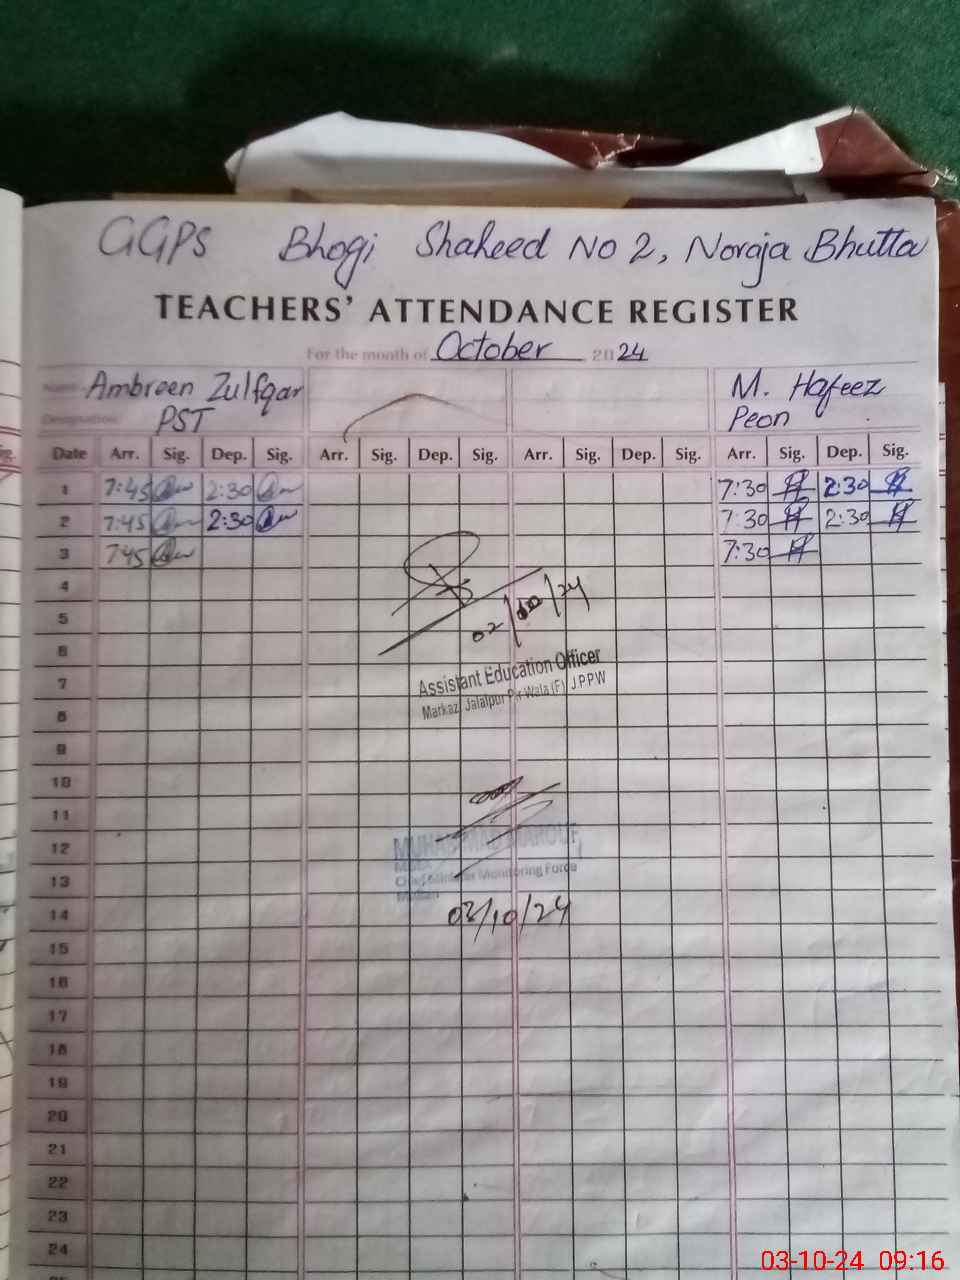 GGPS Bhogi Shaheed No 2, Noraja Bhutta
TEACHERS' ATTENDANCE REGISTER
For the month of October 2024
Name Ambreen Zulfqar M. Hafeez
Designation PST Peon
Date Arr. Sig. Dep. Sig. Arr. Sig. Dep. Sig. Arr. Sig. Dep. Sig. Arr. Sig. Dep. Sig.
1 7:45 2:30 7:30 2:30
2 7:45 2:30 7:30 2:30
3 7:45 7:30
4
5
02/10/24
6
7
Assistant Education Officer
Markaz Jalalpur Pir Wala (F) J.PPW
8
9
10
11
12
MUHAMMAD MAROOF
13
Chief Minister Monitoring Force
Multan
14
03/10/24
15
16
17
18
19
20
21
22
23
24
03-10-24 09:16